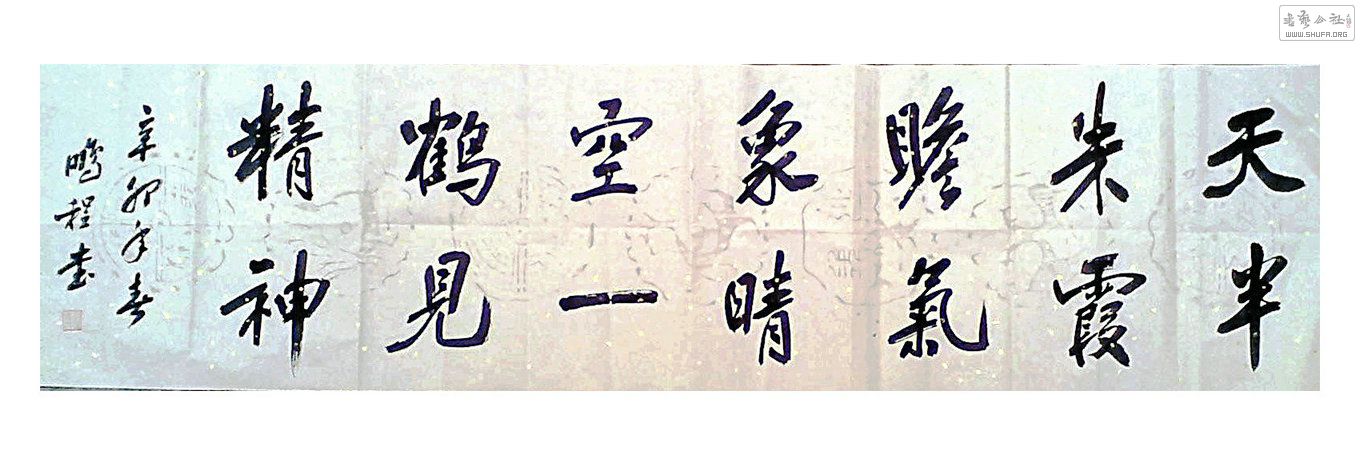 天半
朱霞
瞻氣
象晴
空一
鶴見
精神
辛卯年春
鵬程書
书艺公社
WWW.SHUFA.ORG